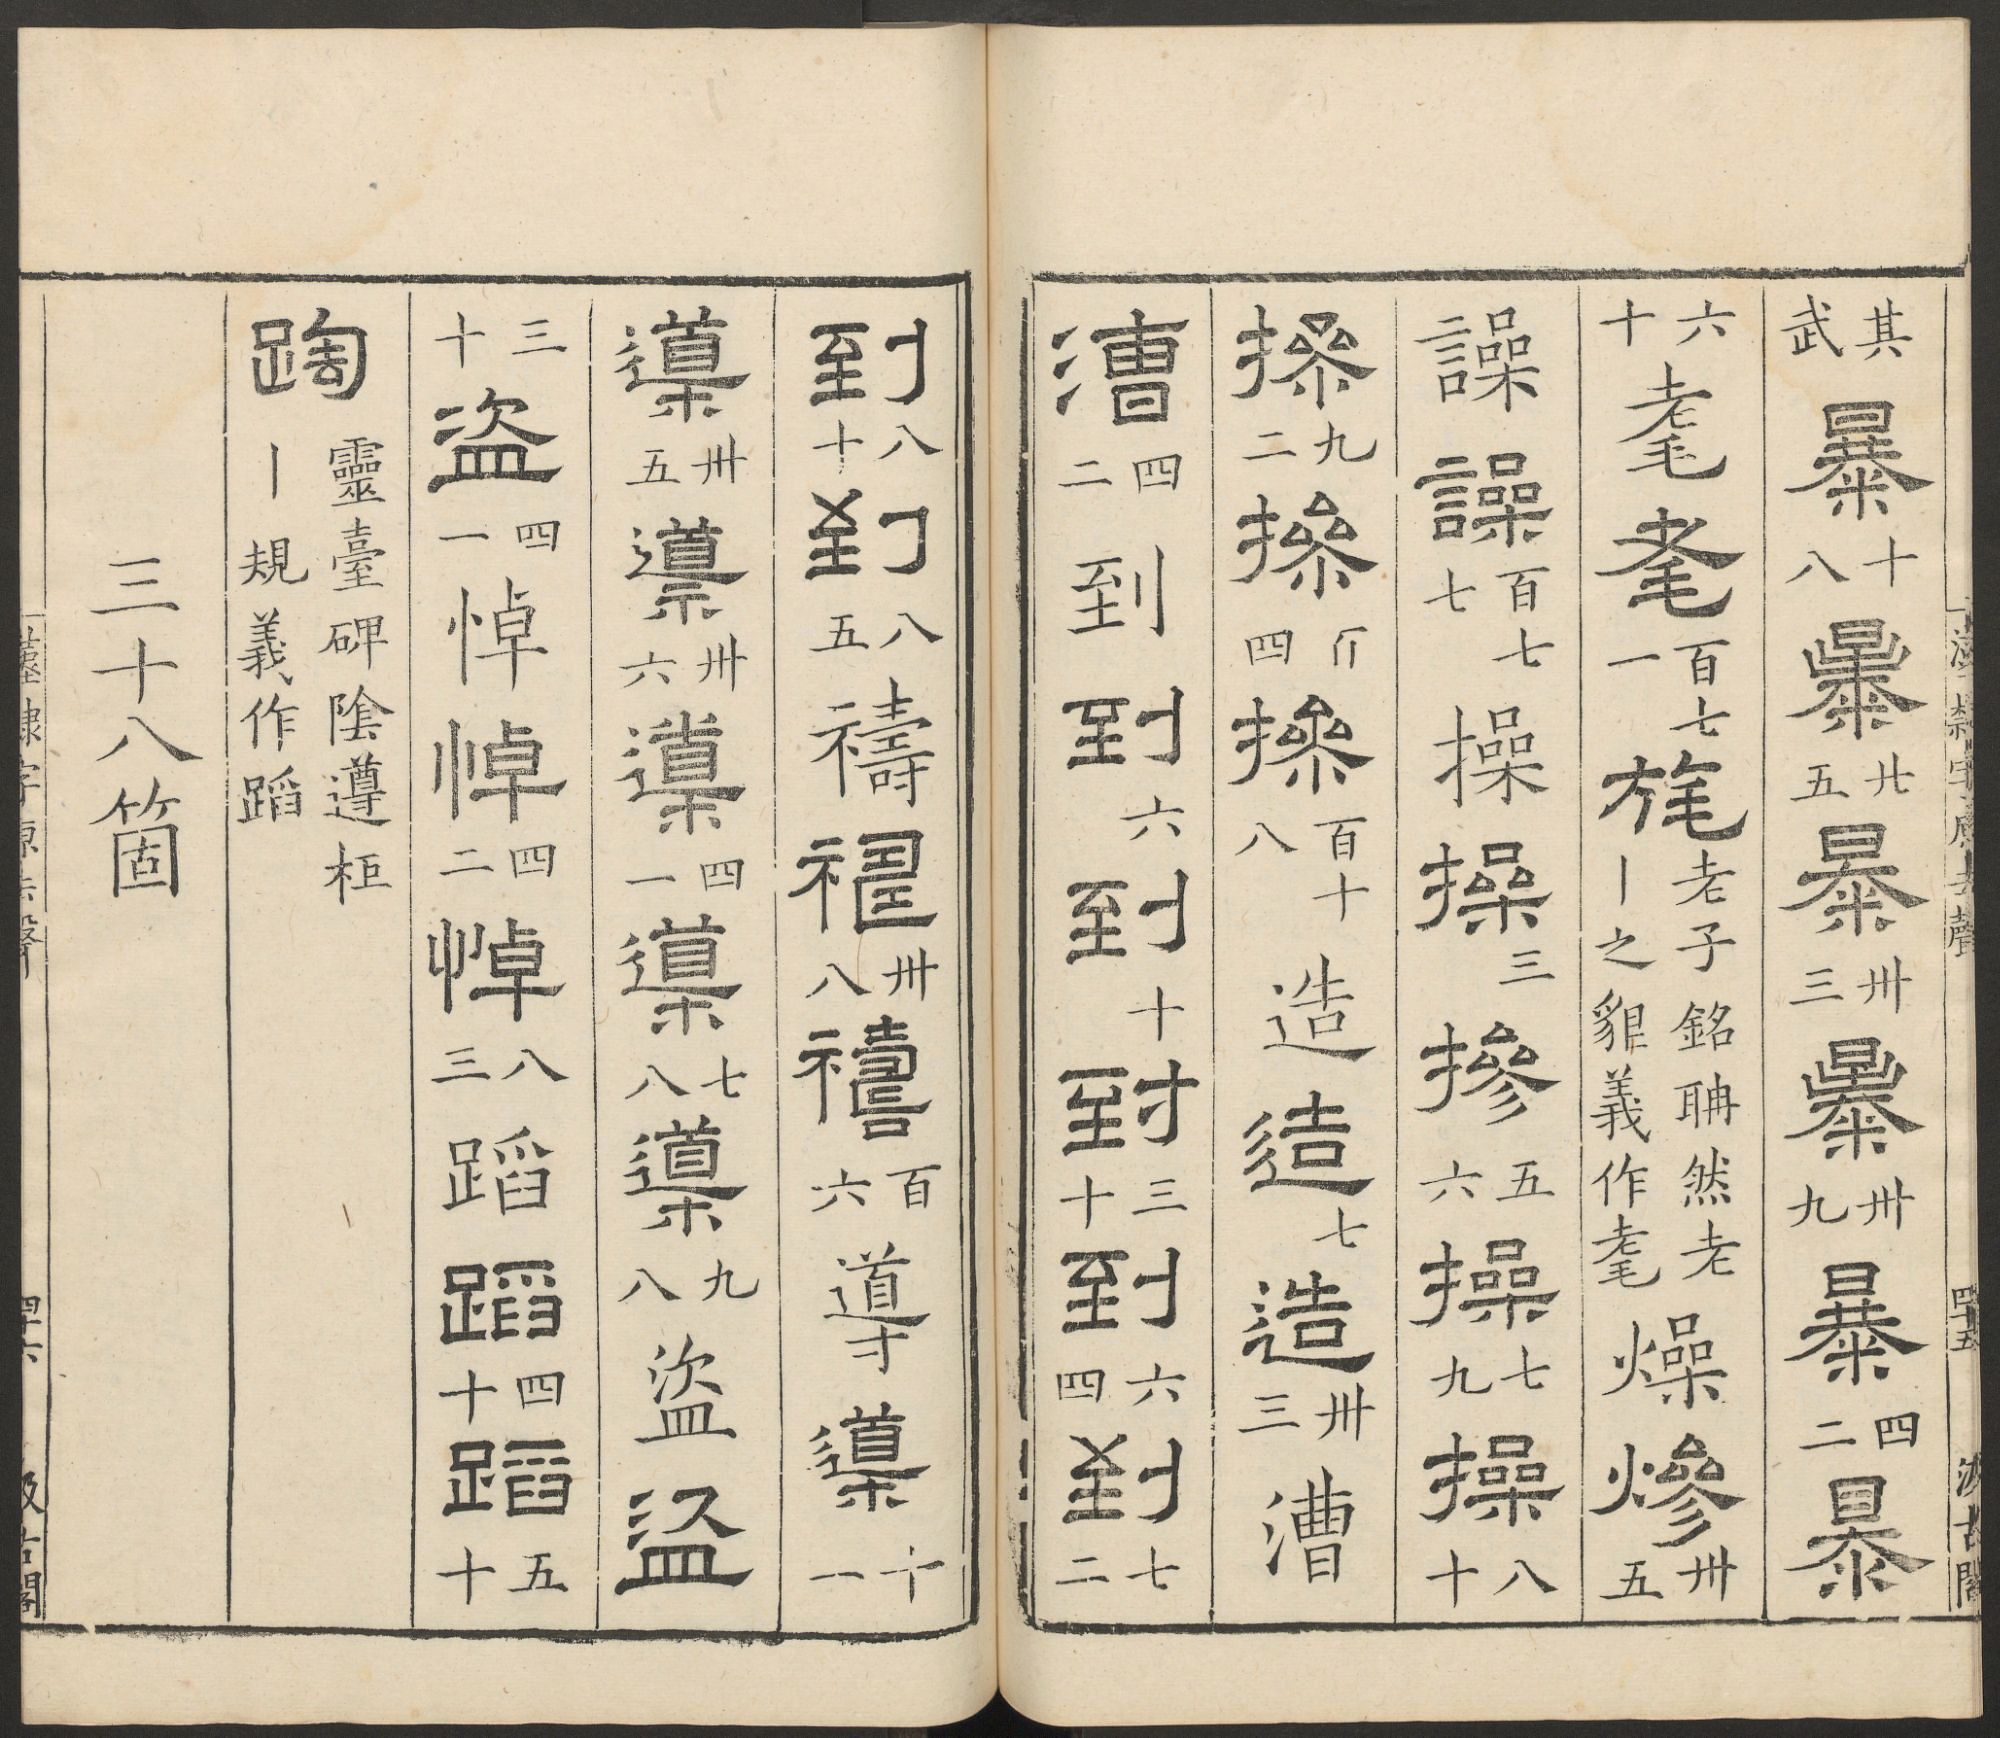 其武暴十八暴廿五暴卅三暴卅九暴四二暴
六十耄耄百七一旄老子銘聃然老丨之貌義作耄燥燥卅五
譟譟百七七操操三操五六操七九操八十
操九二操操百十八造造七造卅三漕
漕四二到到六到十到三十到六四到七二
到八十到八五禱禱卅八禱百六導導十一
導卅五導卅六導四一導七八導九八盜盜
三十盜四一悼悼四二悼八三蹈蹈四十蹈五十
蹈靈臺碑陰遵柜丨規義作蹈
三十八箇
漢隸字原去聲 四十五 汲古閣
漢隸字原去聲 四十六 汲古閣